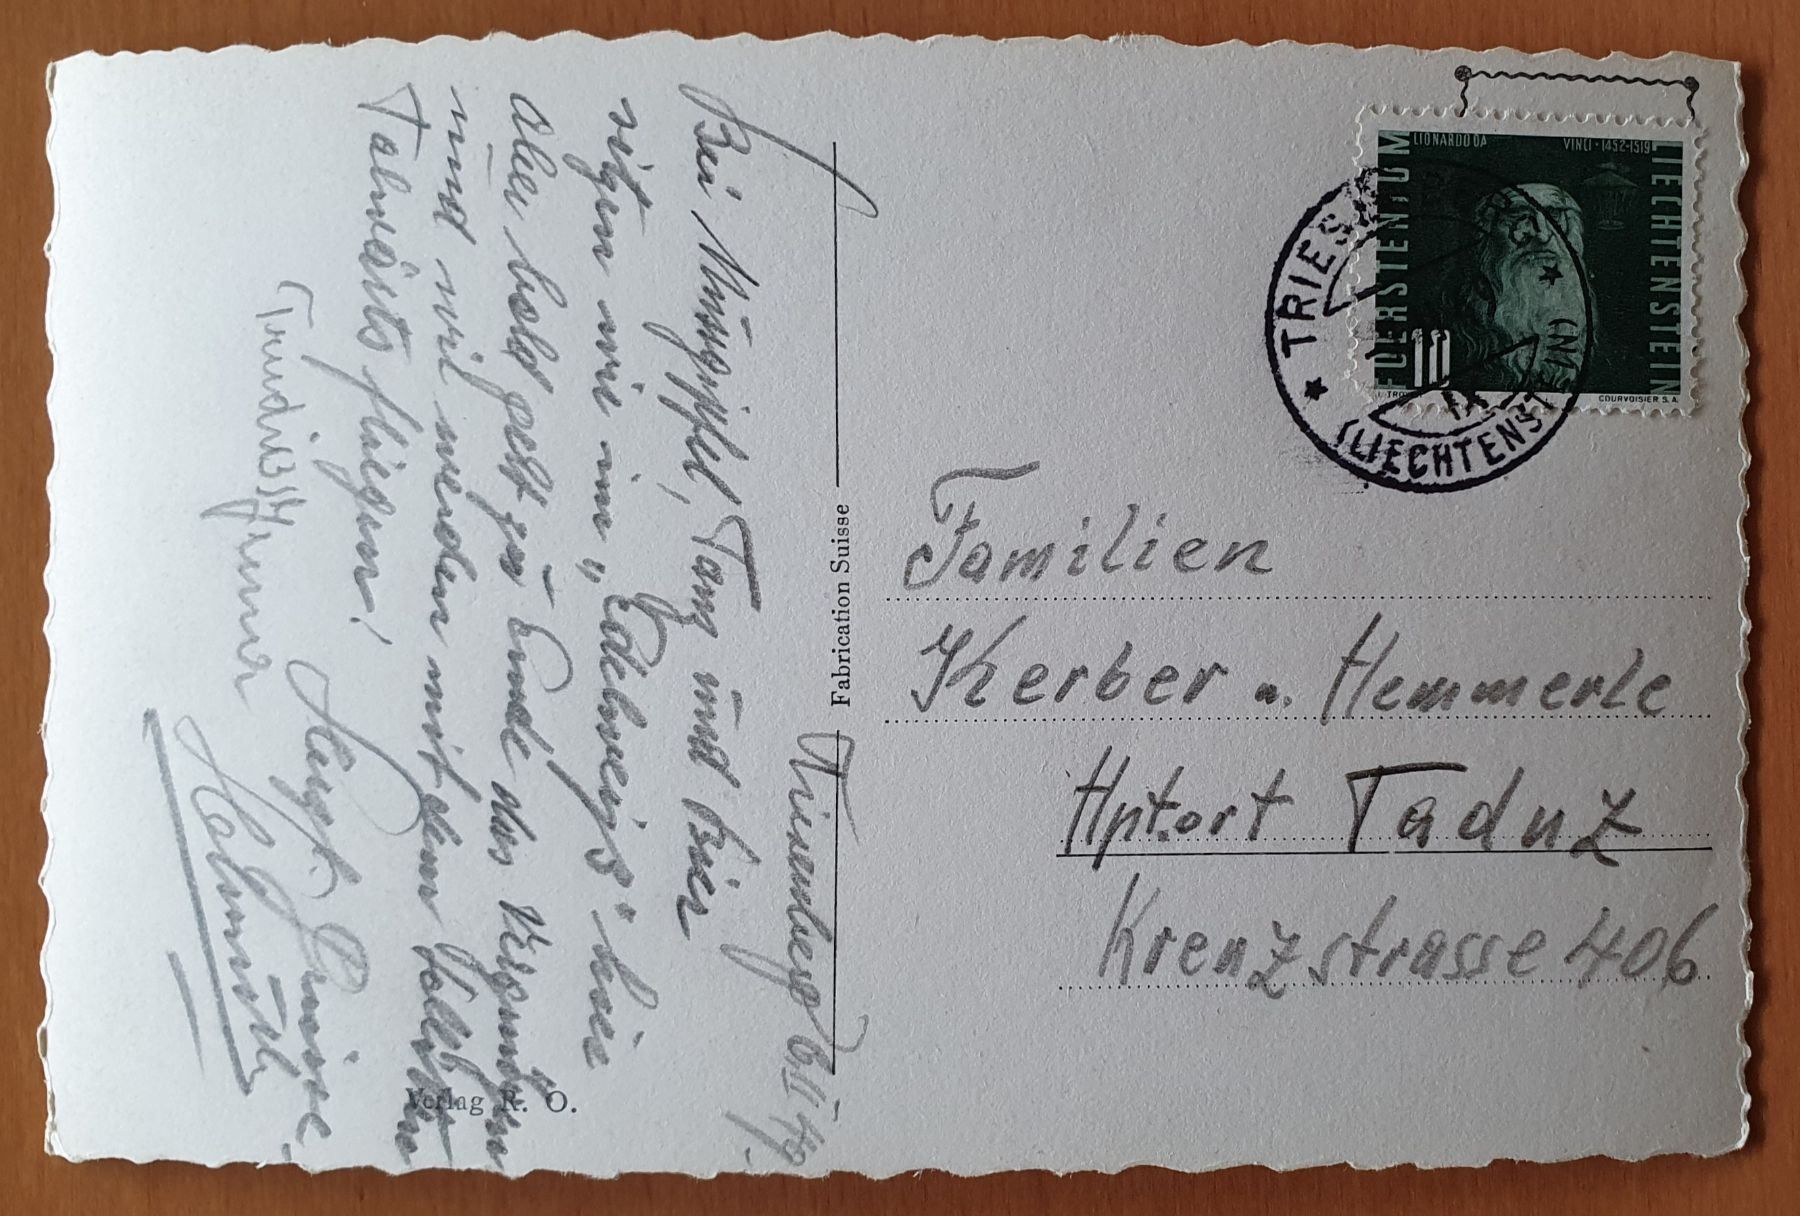 Triesenberg 6.II.49.
Bei Musik, Tanz und Bier
sitzen wir im „Edelweiss" hier
aber bald geht zu Ende das Vergnügen
und wir werden mit dem
Talwärts fliegen!
Grüsse
Helmuth
Fabrication Suisse
Verlag R. O.
LIONARDO DA VINCI · 1452-1519
FUERSTENTUM
LIECHTENSTEIN
10
COURVOISIER S.A.
TRIESENBERG
(LIECHTENSTEIN)
Familien
Kerber u. Hemmerle
Hptort Vaduz
Kreuzstrasse 406